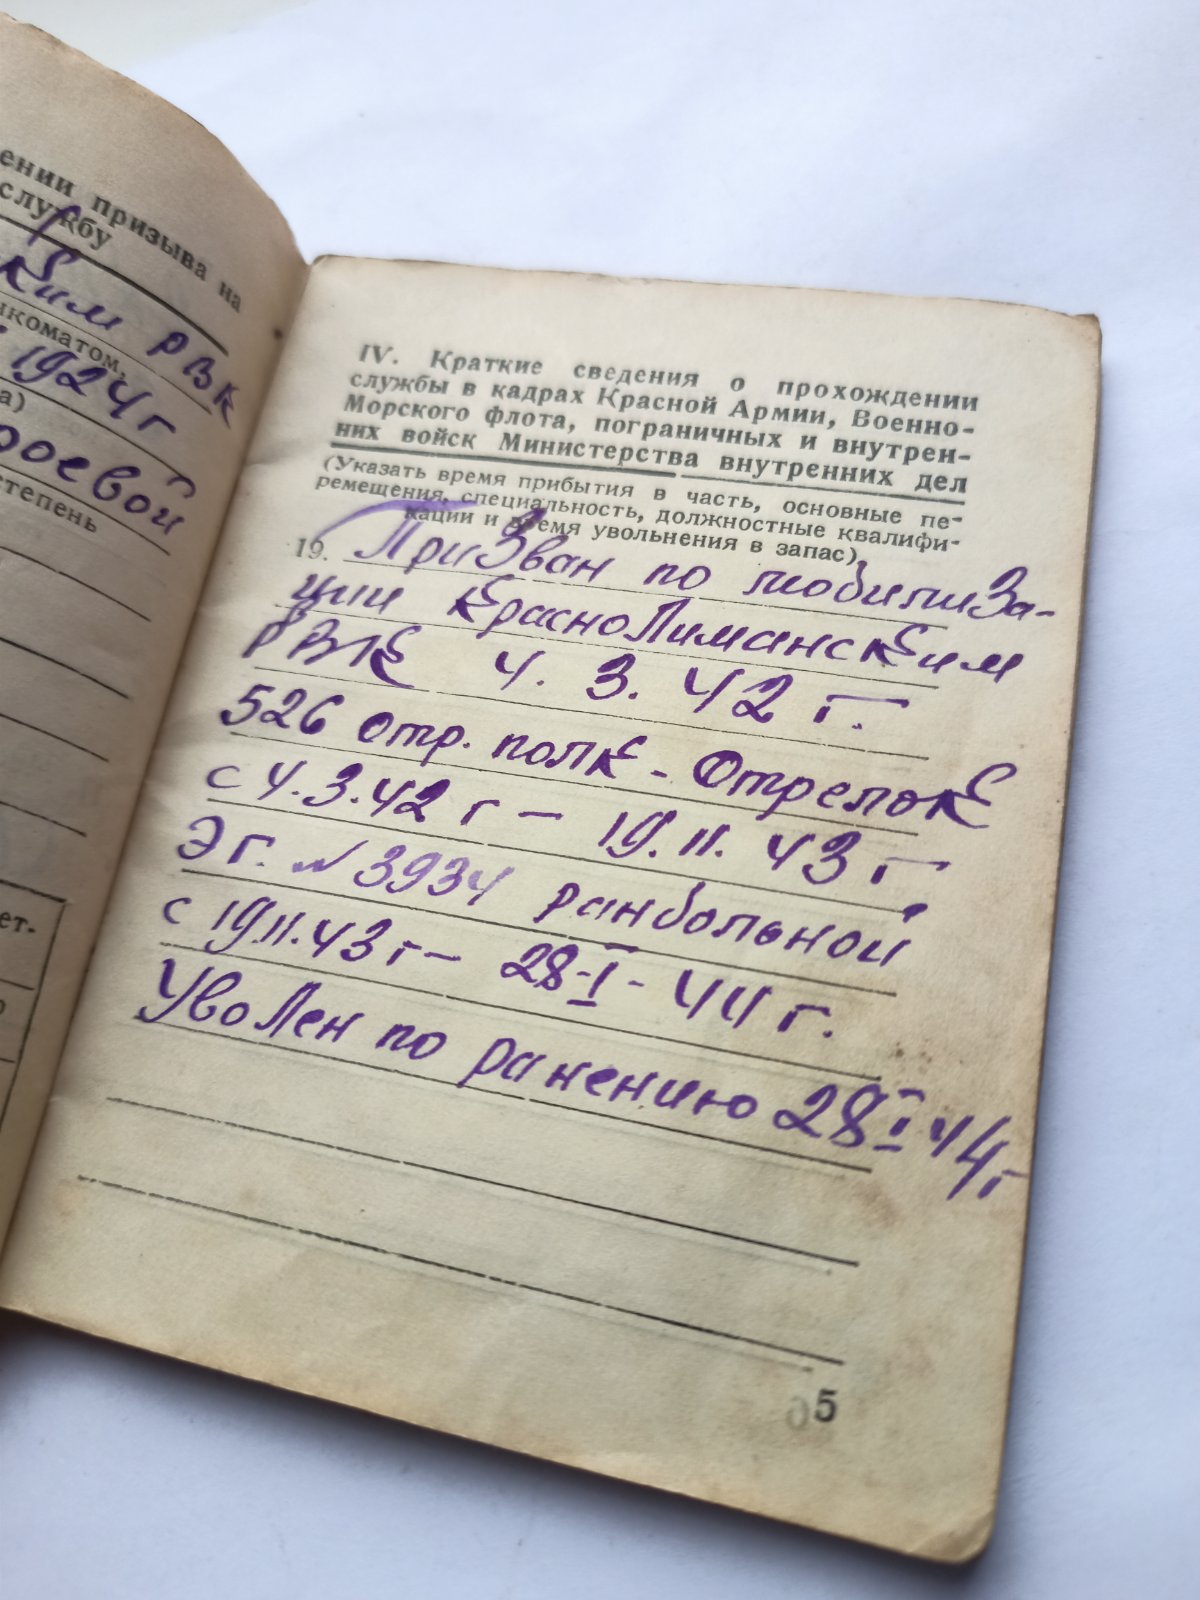 ении призыва на
службу
ким РВК
нкоматом,
1924 г
а)
роевой
степень
ет-
IV. Краткие сведения о прохождении
службы в кадрах Красной Армии, Военно-
Морского флота, пограничных и внутрен-
них войск Министерства внутренних дел
(Указать время прибытия в часть, основные пе-
ремещения, специальность, должностные квалифи-
кации и время увольнения в запас).
19. Призван по мобилиза-
ции КрасноЛиманским
РВК 4. 3. 42 г.
526 стр. полк - Стрелок
с 4. 3. 42 г – 19. 11. 43 г
Эг. № 3934 ранбольной
с 19.11.43 г – 28-I-44 г.
Уволен по ранению 28 I 44 г
5